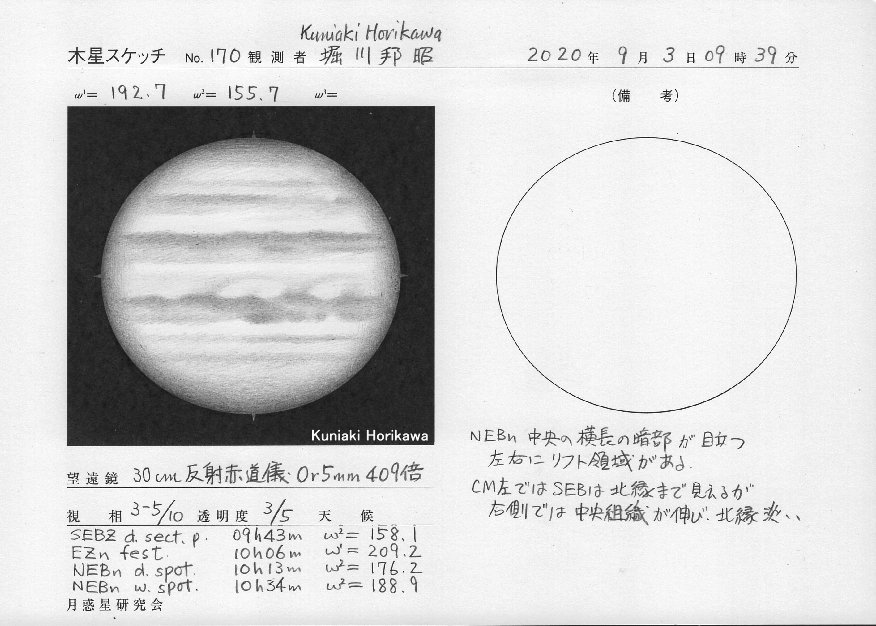 Kuniaki Horikawa
木星スケッチ No. 170 観測者 堀川邦昭 2020年 9月 3日 09時 39分
ω¹= 192.7 ω²= 155.7 ω³=
(備 考)
Kuniaki Horikawa
NEBn 中央の横長の暗部が目立つ
左右にリフト領域がある.
CM左ではSEBは北縁まで見えるが
右側では中央組織が伸び、北縁淡い、
望遠鏡 30cm 反射赤道儀 Or5mm 409倍
視 相 3-5/10 透明度 3/5 天 候
SEBZ d. sect. p. 09h43m ω²= 158.1
EZn fest. 10h06m ω¹= 209.2
NEBn d. spot. 10h13m ω²= 176.2
NEBn w. spot. 10h34m ω²= 188.9
月惑星研究会